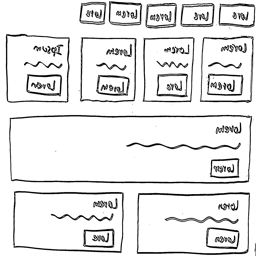 Lore Lore Lorem Lorem Lore
Lorem Lorem Lorem Ipsum
Lorem Lore Lorem Lorem
Lorem
Lorem
Lorem Lorem
Lorem Lore